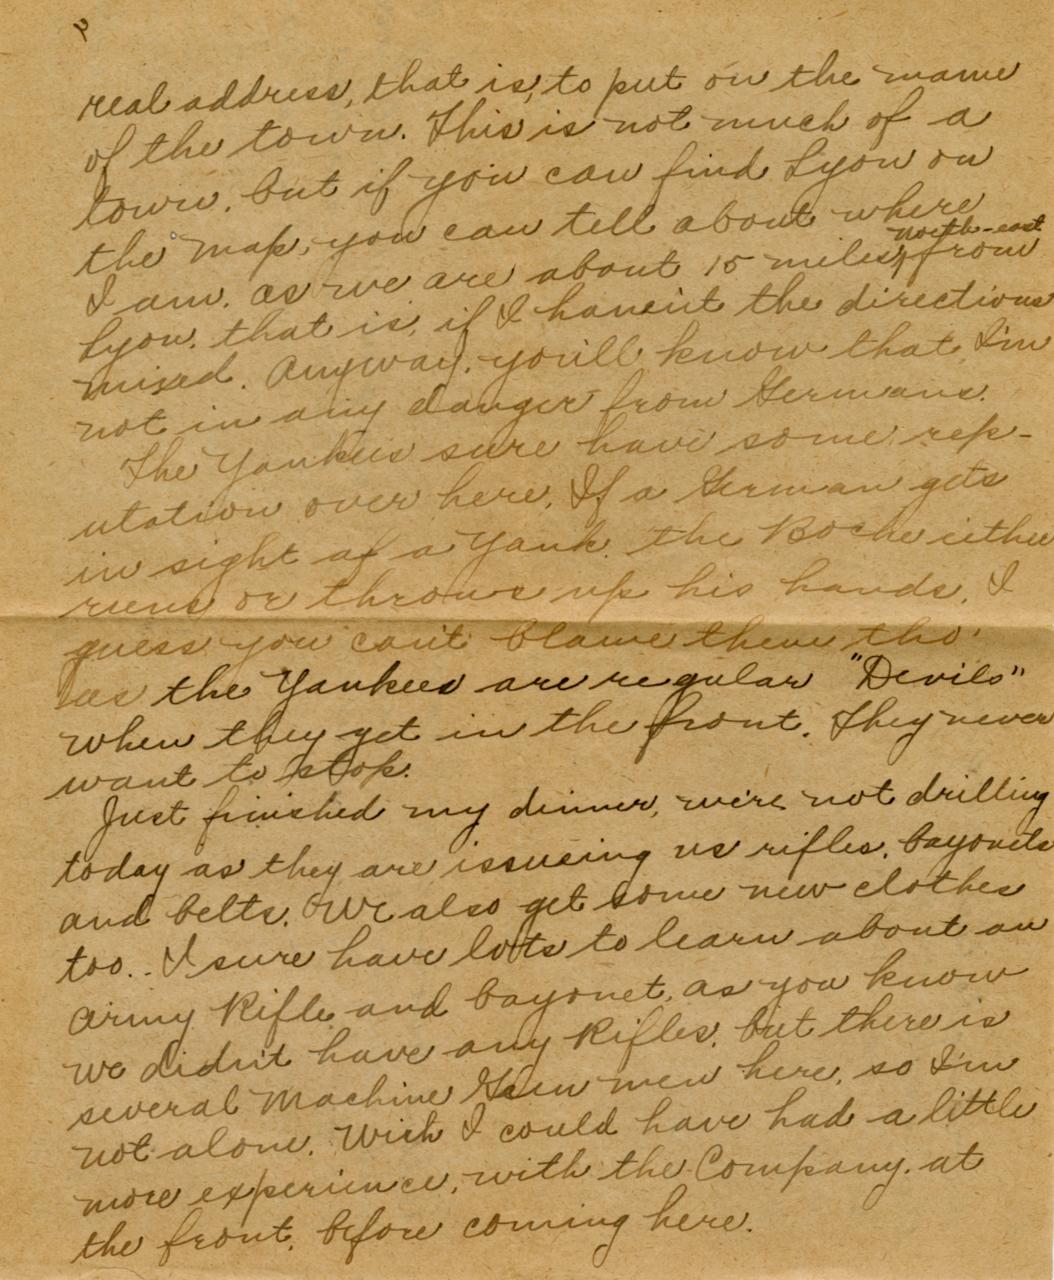 2
real address, that is, to put on the name
of the town. This is not much of a
town, but if you can find Lyon on
the map, you can tell about where
I am. as we are about 15 miles, north-east from
Lyon, that is, if I haven't the directions
mixed. Anyway, you'll know that I'm
not in any danger from Germans.
The Yankees sure have some rep-
utation over here. If a German gets
in sight of a Yank, the Boche either
runs or throws up his hands. I
guess you can't blame them tho'
as the Yankees are regular "Devils"
when they get in the front. They never
want to stop.
Just finished my dinner, we're not drilling
today as they are issueing us rifles, bayonets
and belts. We also get some new clothes
too.. I sure have lots to learn about an
Army Rifle and bayonet, as you know
we didn't have any Rifles, but there is
several Machine Gun men here, so I'm
not alone. Wish I could have had a little
more experience, with the Company, at
the front, before coming here.